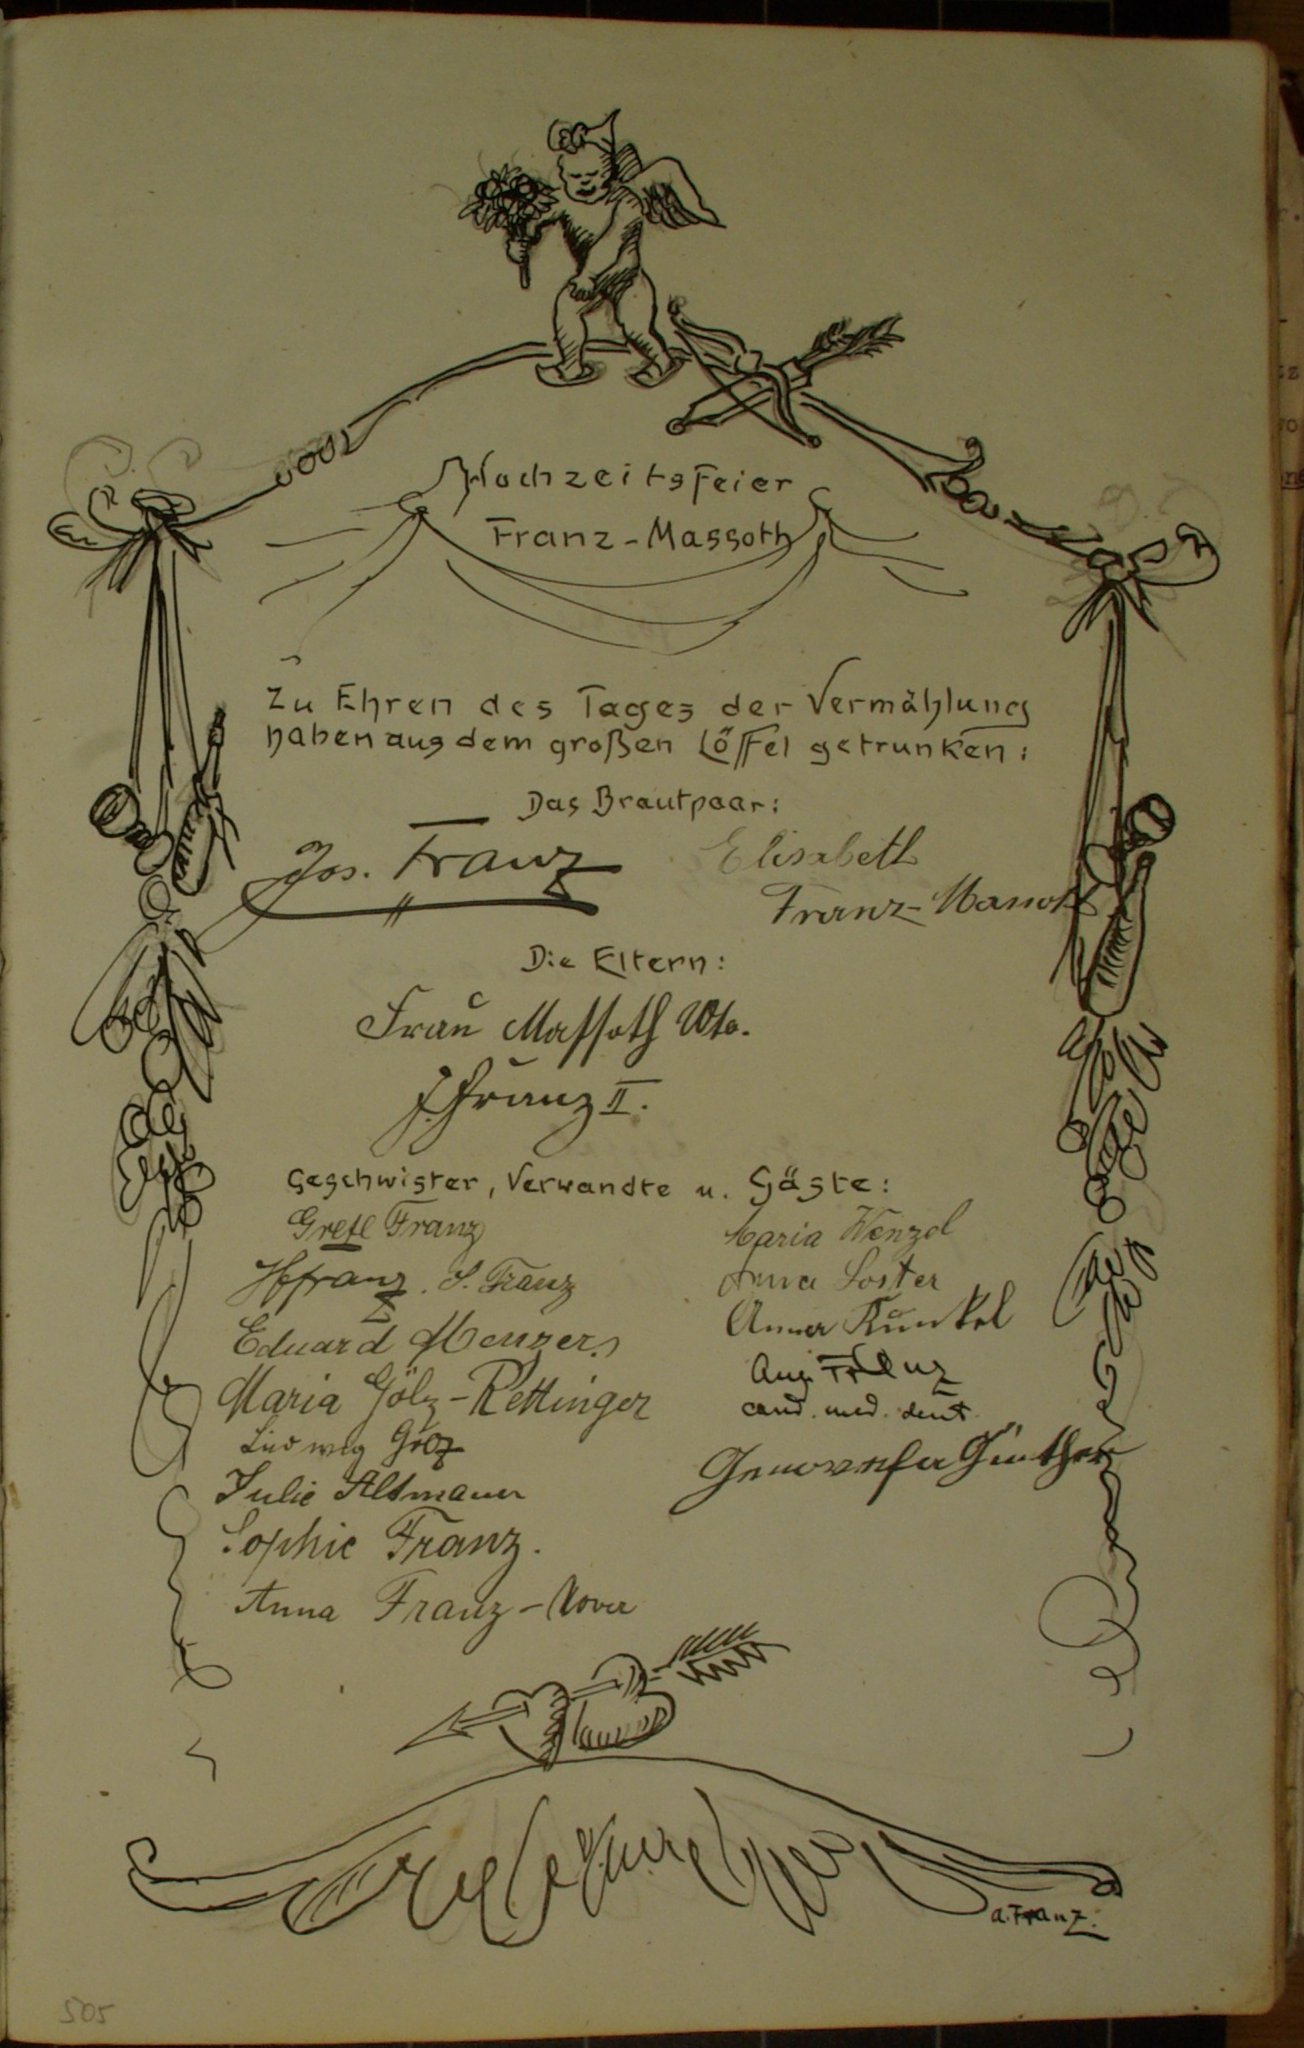 Hochzeitsfeier
Franz-Massoth
Zu Ehren des Tages der Vermählung
haben aus dem großen Löffel getrunken:
Das Brautpaar:
Jos. Franz
Elisabeth
Franz-Massoth
Die Eltern:
Frau Massoth Wtw.
J. Franz II.
Geschwister, Verwandte u. Gäste:
Gretl Franz
Franz. S. Franz
Eduard Menzer
Maria Gölz-Rettinger
Ludwig Gölz
Julie Altmauer
Sophie Franz.
Anna Franz-Nover
Maria Wenzel
Anna Soster
Anna Kunkel
Aug. Franz
cand. med. dent.
Genovefa Günther
A. Franz.
505